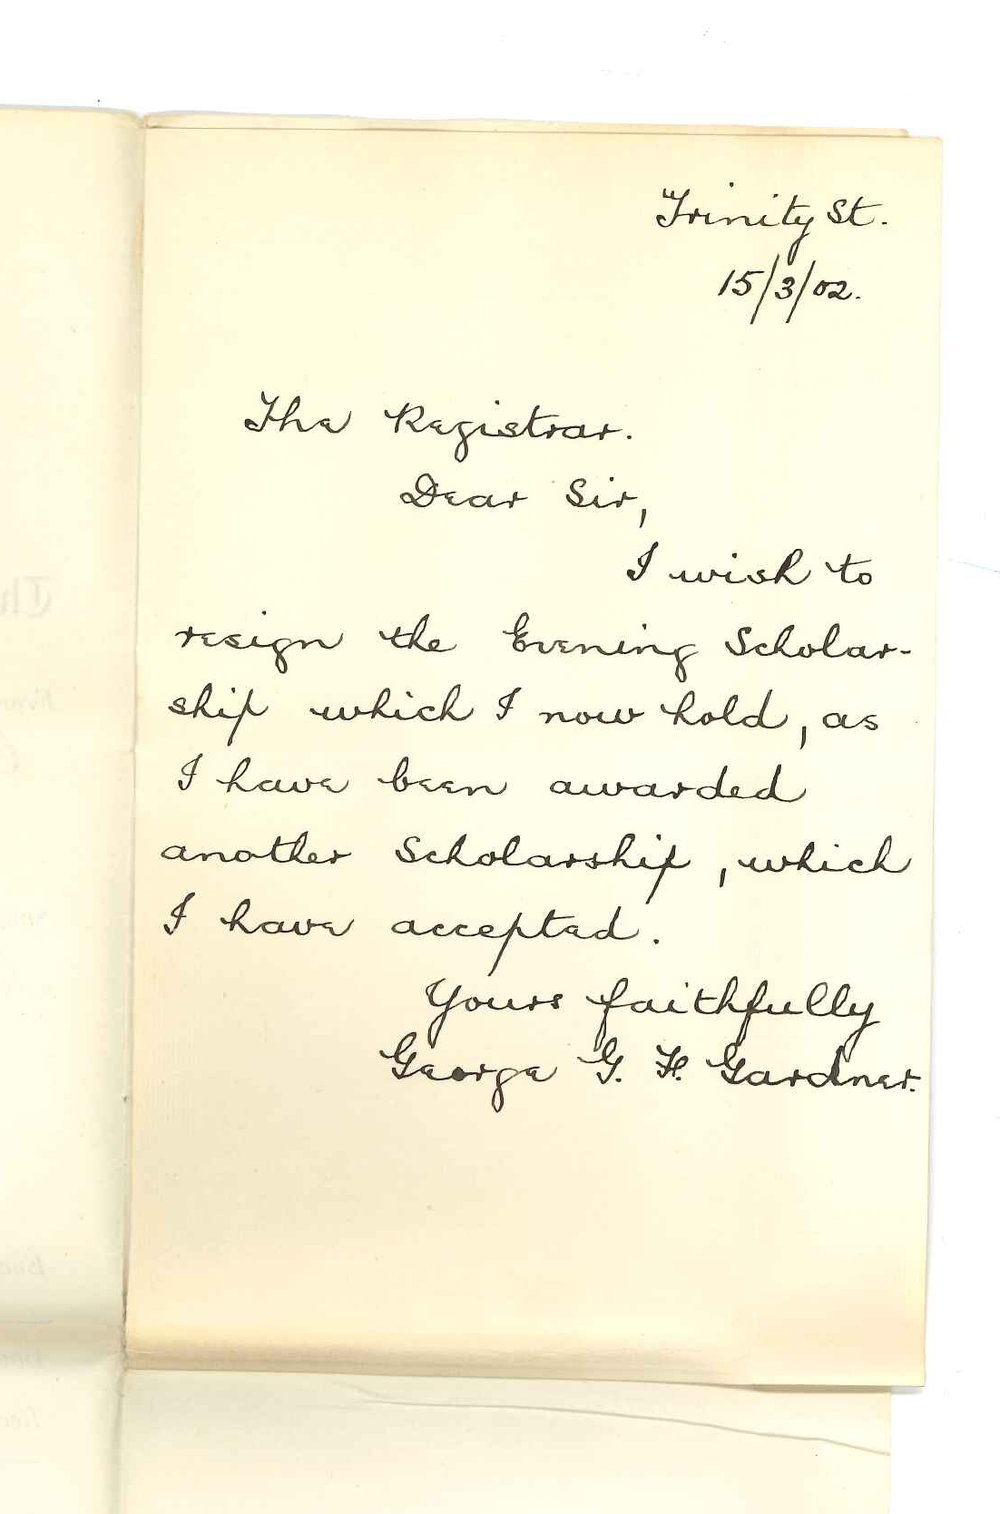 Trinity St.
15/3/02.
The Registrar.
Dear Sir,
I wish to
resign the Evening Scholar-
ship which I now hold, as
I have been awarded
another Scholarship, which
I have accepted.
Yours faithfully
George G. F. Gardner.